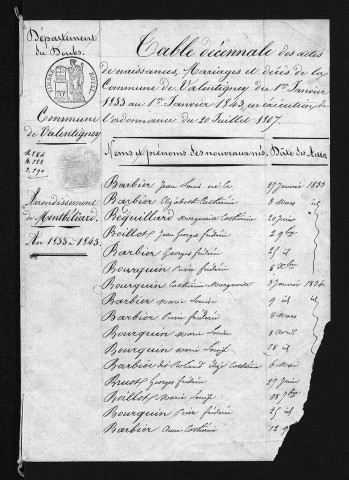 Département
du Doubs.
Commune
de Valentigney
Arrondissement
de Montbéliard.
An 1833 à 1843.
Table décennale des actes
de naissances, Mariages et décès de la
Commune de Valentigney du 1er Janvier
1833 au 1er Janvier 1843, en exécution de
l'ordonnance du 20 Juillet 1807.
Noms et prénoms des nouveaux nés. Date des Actes
Barbier Jean Louis 27 Janvier 1833
Barbier Elizabeth Catherine 3 Mars id
Bequillard Marguerite Catherine 20 Juin
Boillot Jean Georges frédéric 2 9bre
Barbier Georges frédéric 25 id
Bourquin Pierre frédéric 8 Xbre
Bourquin Catherine Marguerite 3 Janvier 1834
Barbier Marie Louise 9 id id
Barbier Pierre frédéric 4 Mars
Bourquin Marie Louise 8 Avril
Bourquin Marie Louise 18 id
Barbier dit Roland Catherine 6 Mai
Bruot Georges frédéric 27 Juin
Boillot Marie Louise 28 7bre
Bourquin Pierre frédéric 25 id
Barbier Anne Catherine 12